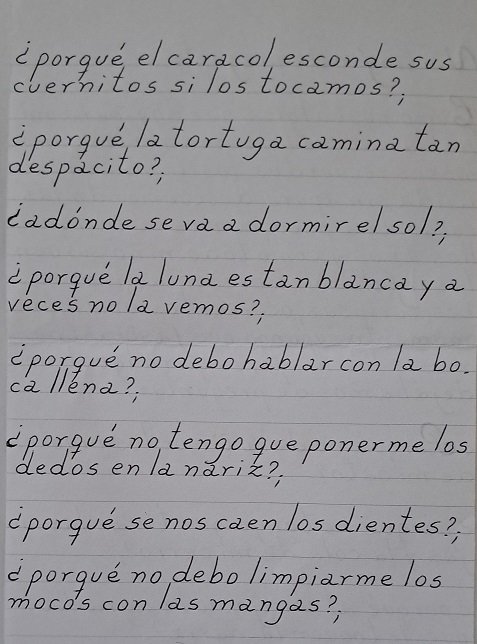 ¿porqué el caracol esconde sus
cuernitos si los tocamos?;
¿porqué la tortuga camina tan
despacito?;
¿adónde se va a dormir el sol?;
¿porqué la luna es tan blanca y a
veces no la vemos?;
¿porqué no debo hablar con la bo-
ca llena?;
¿porqué no tengo que ponerme los
dedos en la nariz?;
¿porqué se nos caen los dientes?;
¿porqué no debo limpiarme los
mocos con las mangas?;